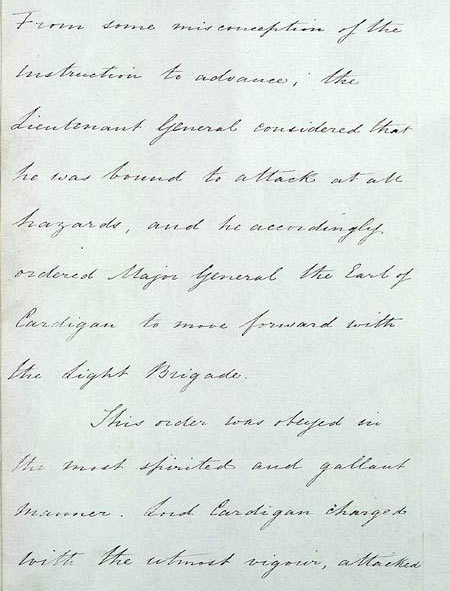 From some misconception of the
instruction to advance, the
Lieutenant General considered that
he was bound to attack at all
hazards, and he accordingly
ordered Major General the Earl of
Cardigan to move forward with
the Light Brigade.
This order was obeyed in
the most spirited and gallant
manner. Lord Cardigan charged
with the utmost vigour, attacked